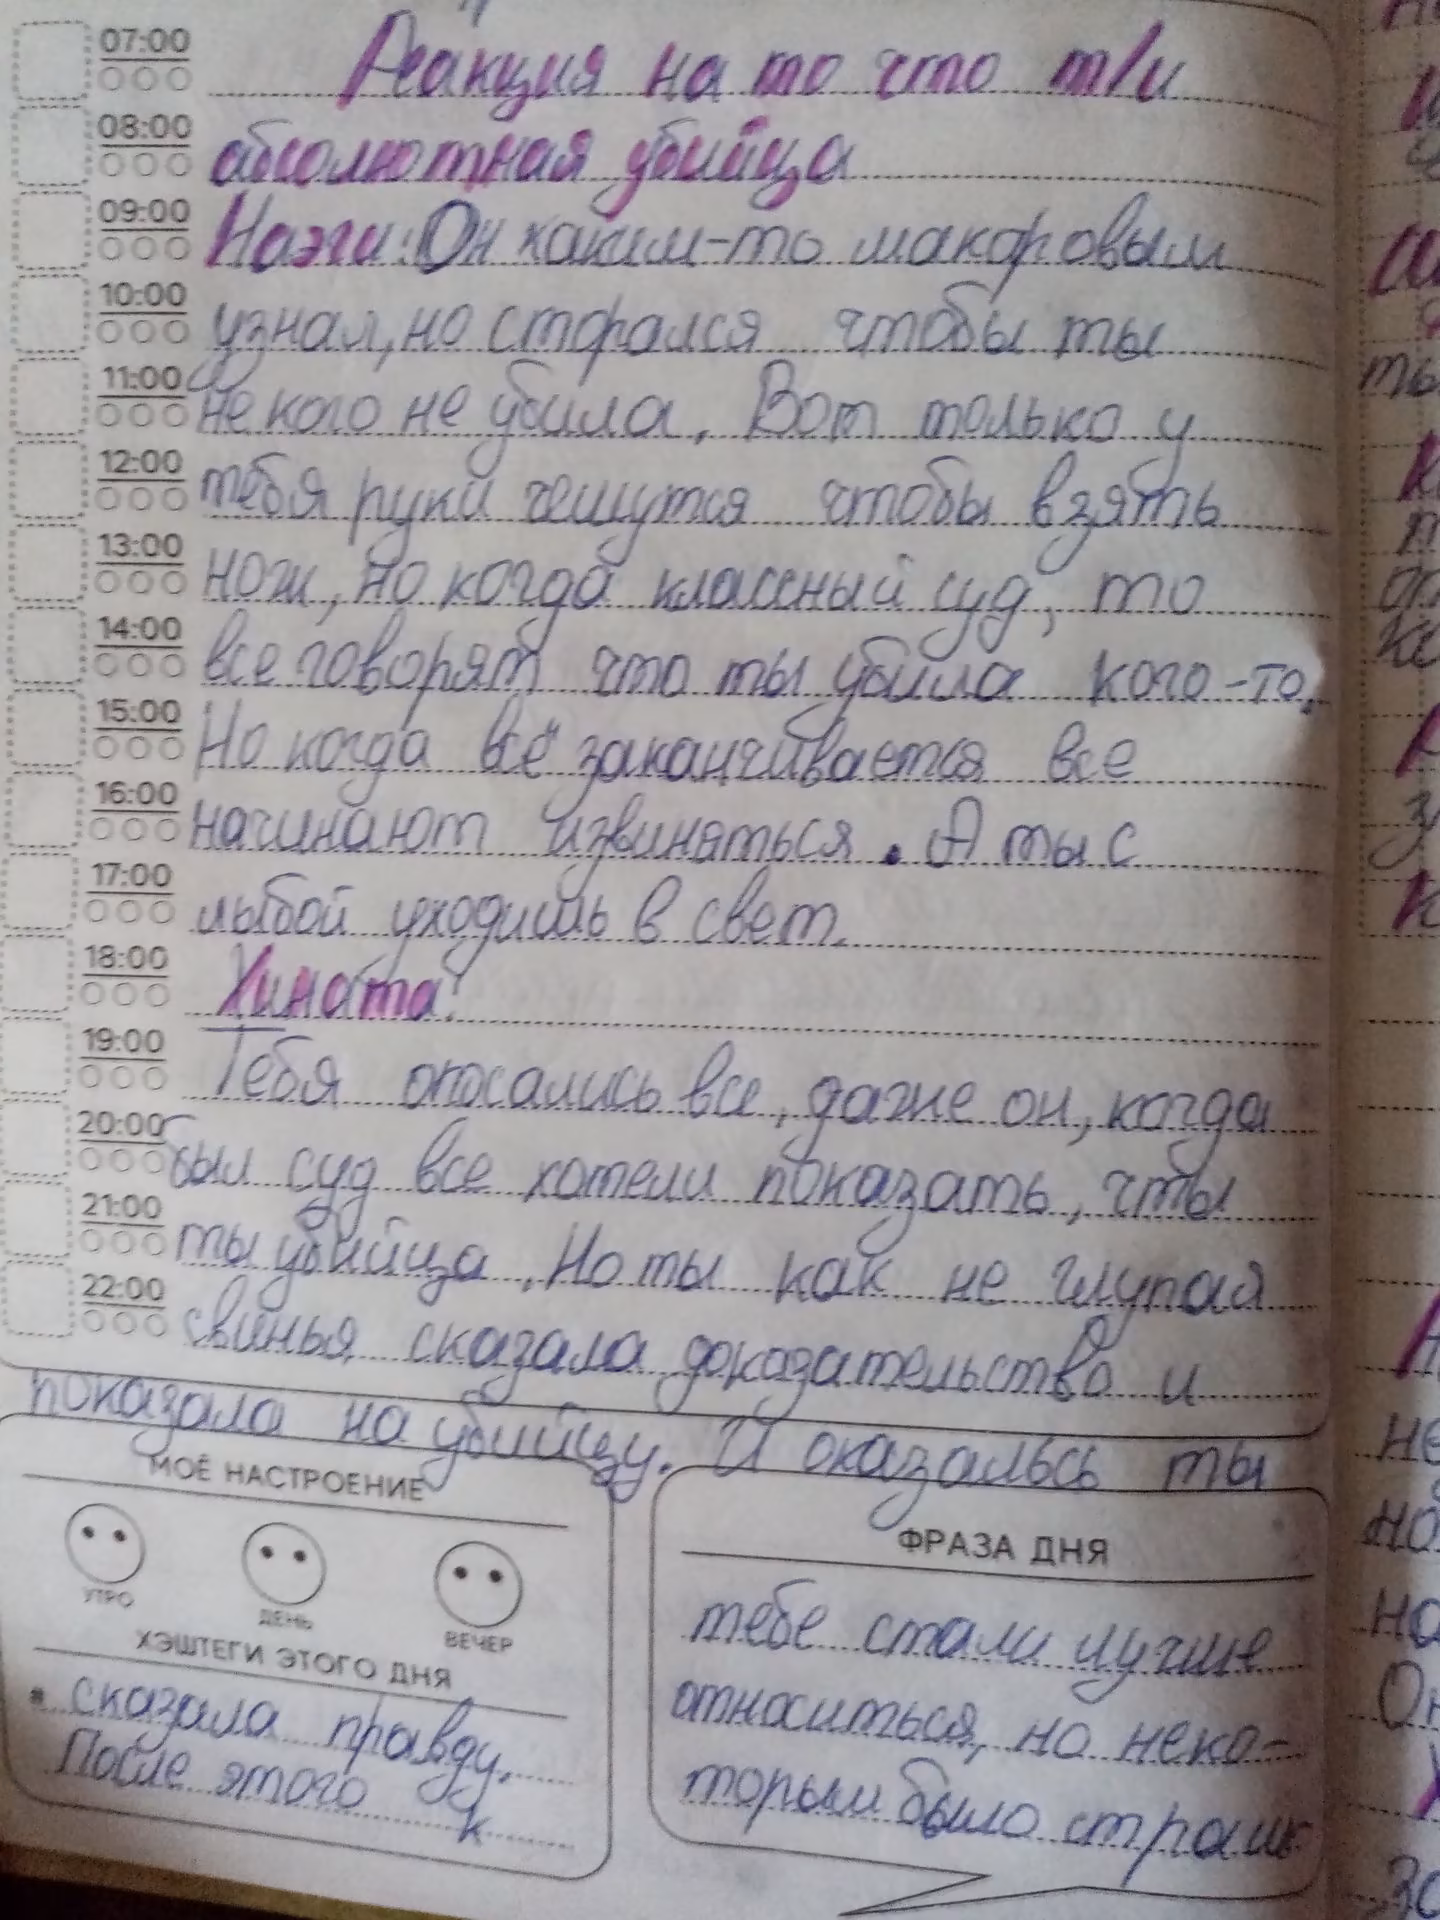 07:00
Реакция на то что т/и
08:00
абсолютная убийца
09:00
Наэги: Он каким-то макоровым
10:00
узнал, но сторался чтобы ты
11:00
не кого не убила. Вот только у
12:00
тебя руки чешутся чтобы взять
13:00
нож, но когда классный суд, то
14:00
все говорят что ты убила кого-то.
15:00
Но когда всё заканчивается все
16:00
начинают извиняться. А ты с
17:00
лыбой уходишь в свет.
18:00
Хината:
19:00
Тебя опосались все, даже он, когда
20:00
был суд все хотели показать, чты
21:00
ты убийца. Но ты как не глупая
22:00
свинья сказала доказательство и
показала на убийцу. И оказальсь ты
МОЁ НАСТРОЕНИЕ
УТРО
ДЕНЬ
ВЕЧЕР
ХЭШТЕГИ ЭТОГО ДНЯ
сказала правду.
После этого к
ФРАЗА ДНЯ
тебе стали лучше
относиться, но неко-
торым было страшно
ты
не
на
Он